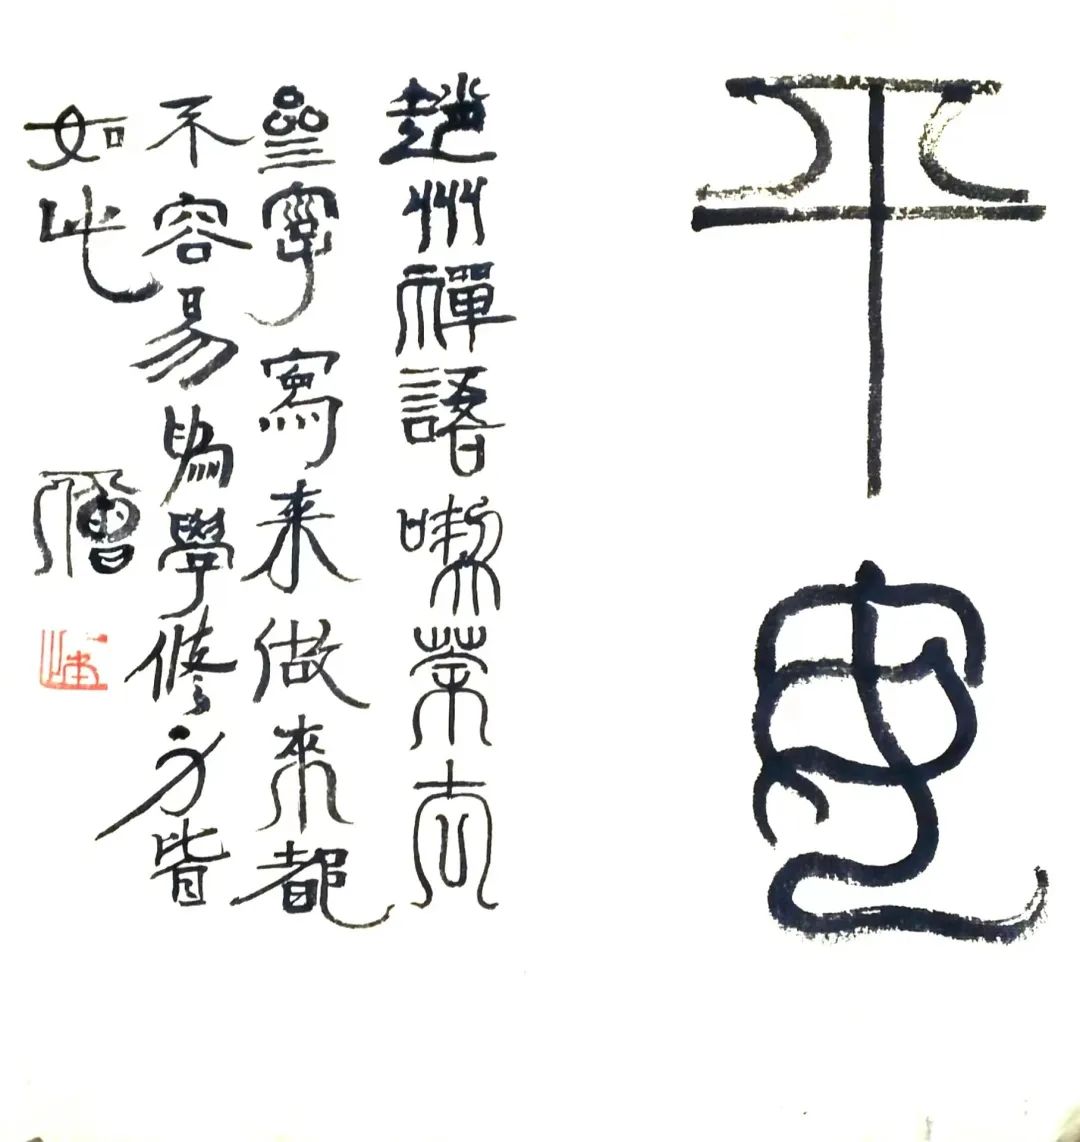 平
趙州禪語喫茶去
叄字寫来做來都
不容易為學修身皆
如此 僧